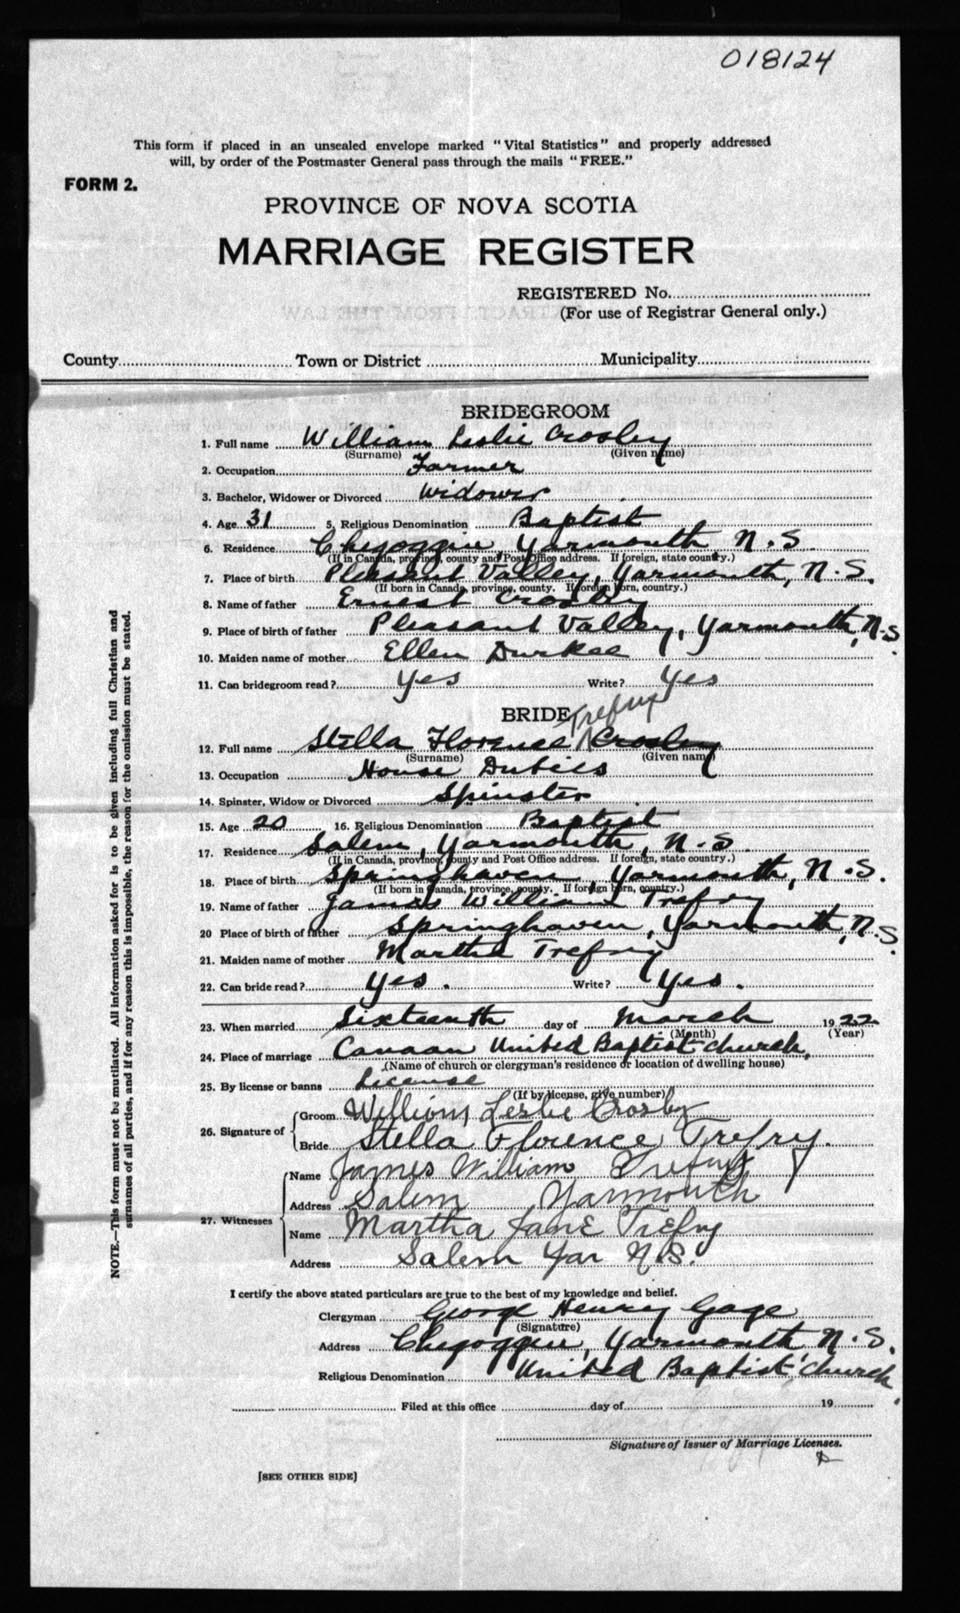 018124
This form if placed in an unsealed envelope marked "Vital Statistics" and properly addressed
will, by order of the Postmaster General pass through the mails "FREE."
FORM 2.
PROVINCE OF NOVA SCOTIA
MARRIAGE REGISTER
REGISTERED No.
(For use of Registrar General only.)
County Town or District Municipality
BRIDEGROOM
1. Full name William Leslie Crosby
(Surname) (Given name)
2. Occupation Farmer
3. Bachelor, Widower or Divorced Widower
4. Age 31 5. Religious Denomination Baptist
6. Residence Chegoggin, Yarmouth N.S.
(If in Canada, province, county and Post Office address. If foreign, state country.)
7. Place of birth Pleasant Valley, Yarmouth, N.S.
(If born in Canada, province, county. If foreign born, country.)
8. Name of father Ernest Crosby
9. Place of birth of father Pleasant Valley, Yarmouth, N.S.
10. Maiden name of mother Ellen Durkee
11. Can bridegroom read? Yes Write? Yes
BRIDE Trefry
12. Full name Stella Florence Crosby
(Surname) (Given name)
13. Occupation House Duties
14. Spinster, Widow or Divorced Spinster
15. Age 20 16. Religious Denomination Baptist
17. Residence Salem, Yarmouth, N.S.
(If in Canada, province, county and Post Office address. If foreign, state country.)
18. Place of birth Springhaven, Yarmouth, N.S.
(If born in Canada, province, county. If foreign born, country.)
19. Name of father James William Trefry
20 Place of birth of father Springhaven, Yarmouth, N.S.
21. Maiden name of mother Martha Trefry
22. Can bride read? Yes. Write? Yes.
23. When married Sixteenth day of March 1922
(Month) (Year)
24. Place of marriage Canaan United Baptist church,
(Name of church or clergyman's residence or location of dwelling house)
25. By license or banns License
(If by license, give number)
26. Signature of Groom William Leslie Crosby
Bride Stella Florence Trefry.
27. Witnesses Name James William Trefry
Address Salem Yarmouth
Name Martha Jane Trefry
Address Salem Yar N.S.
I certify the above stated particulars are true to the best of my knowledge and belief.
Clergyman George Henry Gage
(Signature)
Address Chegoggin, Yarmouth, N.S.
Religious Denomination United Baptist church.
Filed at this office day of 19
Signature of Issuer of Marriage Licenses.
[SEE OTHER SIDE]
NOTE.—This form must not be mutilated. All information asked for is to be given including full Christian and
surnames of all parties, and if for any reason this is impossible, the reason for the omission must be stated.